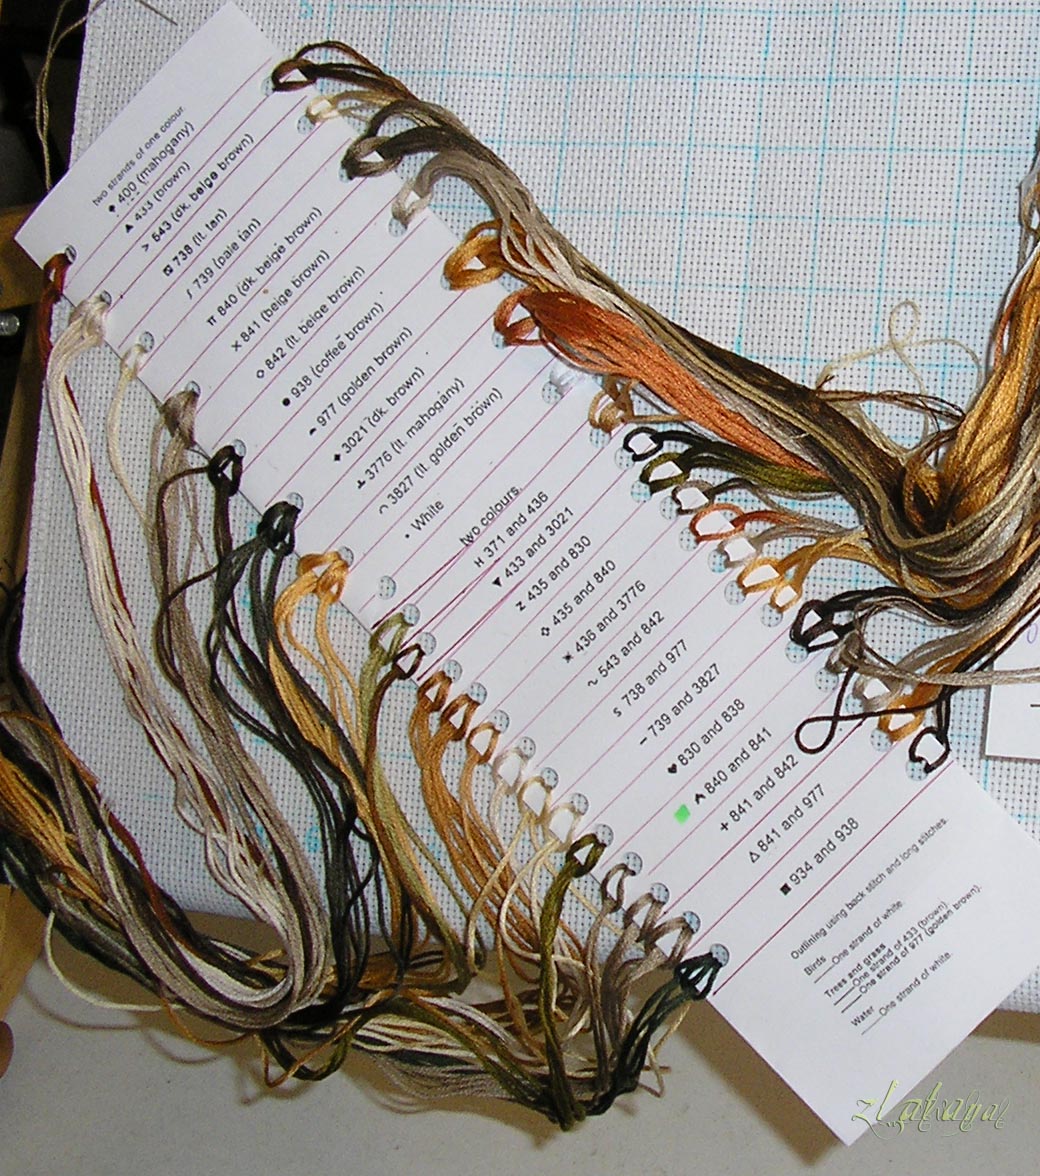 two strands of one colour.
♠ 400 (mahogany)
▲ 433 (brown)
> 543 (dk. beige brown)
738 (lt. tan)
739 (pale tan)
π 840 (dk. beige brown)
× 841 (beige brown)
◇ 842 (lt. beige brown)
● 938 (coffee brown)
977 (golden brown)
◆ 3021 (dk. brown)
3776 (lt. mahogany)
3827 (lt. golden brown)
· White
two colours.
H 371 and 436
▼ 433 and 3021
z 435 and 830
435 and 840
436 and 3776
~ 543 and 842
s 738 and 977
– 739 and 3827
♥ 830 and 838
840 and 841
+ 841 and 842
Δ 841 and 977
■ 934 and 938
Outlining using back stitch and long stitches.
Birds
One strand of white.
Trees and grass
One strand of 433 (brown).
One strand of 977 (golden brown).
Water
One strand of white.